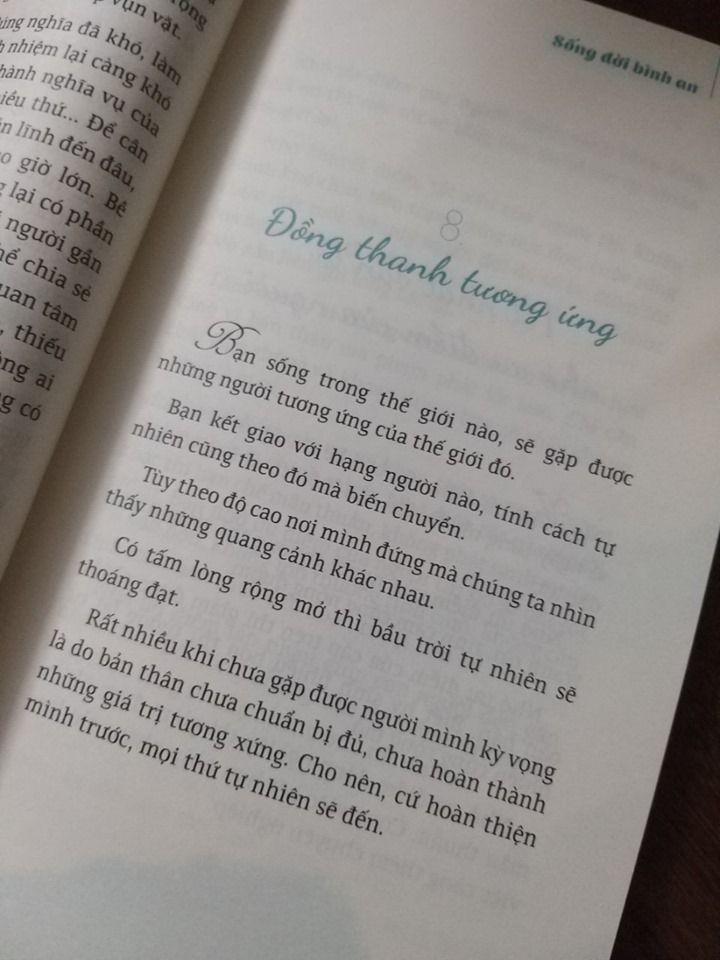 vụn vặt.
nghĩa đã khó, làm
nhiệm lại càng khó
thành nghĩa vụ của
thứ... Để cân
lĩnh đến đâu,
giờ lớn. Bề
lại có phần
người gần
chia sẻ
tâm
thiếu
ai
có
Sống đời bình an
8.
Đồng thanh tương ứng
Bạn sống trong thế giới nào, sẽ gặp được
những người tương ứng của thế giới đó.
Bạn kết giao với hạng người nào, tính cách tự
nhiên cũng theo đó mà biến chuyển.
Tùy theo độ cao nơi mình đứng mà chúng ta nhìn
thấy những quang cảnh khác nhau.
Có tấm lòng rộng mở thì bầu trời tự nhiên sẽ
thoáng đạt.
Rất nhiều khi chưa gặp được người mình kỳ vọng
là do bản thân chưa chuẩn bị đủ, chưa hoàn thành
những giá trị tương xứng. Cho nên, cứ hoàn thiện
mình trước, mọi thứ tự nhiên sẽ đến.